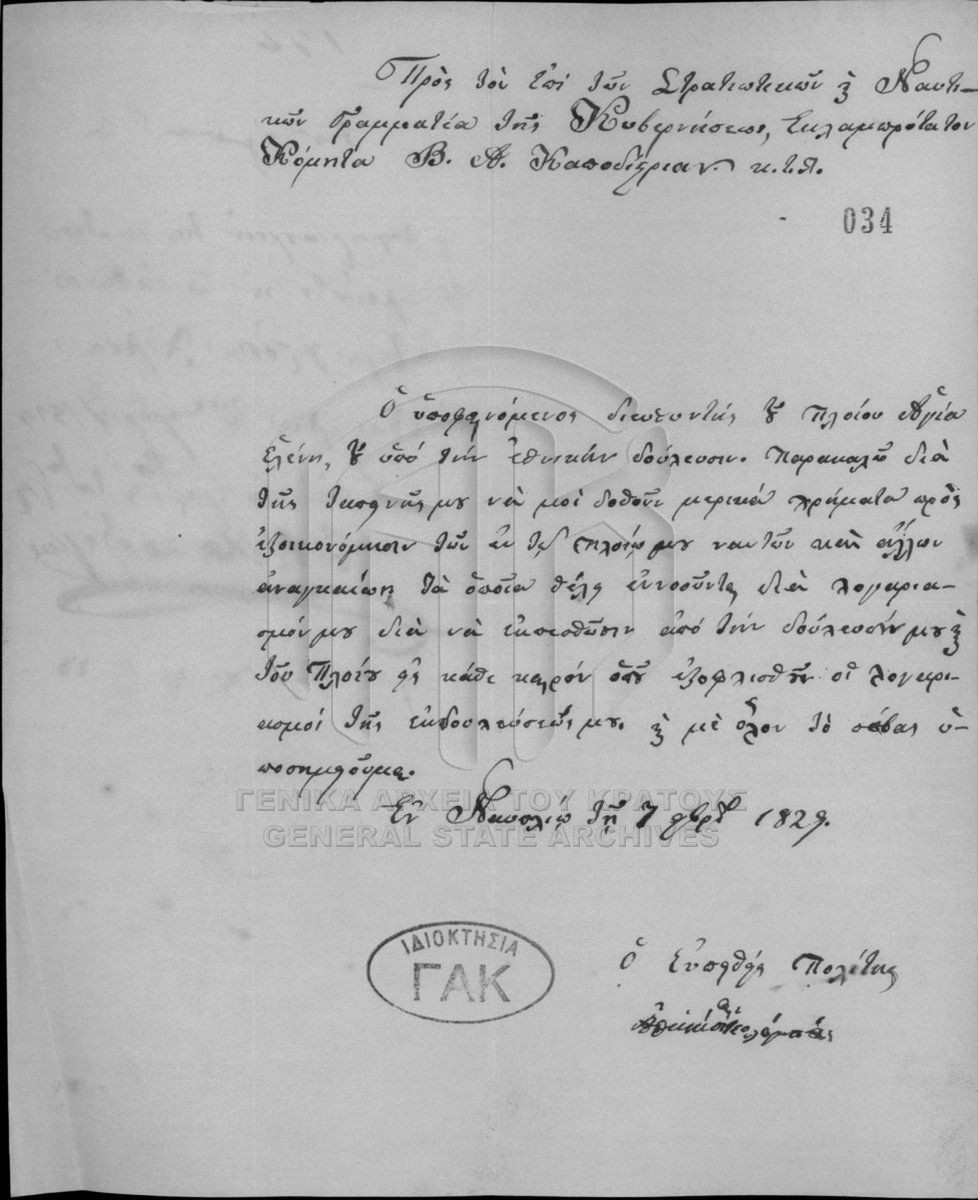 Πρὸς τὸν ἐπὶ τῶν Στρατιωτικῶν ϗ Ναυτι-
κῶν Γραμματέα τῆς Κυβερνήσεως, Ἐκλαμπρότατον
Κόμητα Β. Α. Καποδίϛριαν. κ.τ.λ.
034
Ὁ ὑποφαινόμενος διευθυντής τȣ͂ Πλοίου Ἁγία
Ἑλένη, τȣ͂ ὑπό τὴν ἐθνικήν δούλευσιν. Παρακαλῶ διὰ
τῆς μου νὰ μοὶ δοθοῦν μερικά χρήματα πρὸς
ἐξοικονόμησιν τῶν ἐν τῷ Πλοίῳ μου ναυτῶν καὶ ἄλλων
ἀναγκαίων τὰ ὁποῖα θέλει ἐννοοῦνται διὰ λογαρια-
σμόν μου διὰ νὰ ἐκπεσθῶσιν ἀπό τὴν δούλευσίν μου ϗ
τοῦ Πλοίου εἰς κάθε καιρόν ὁποῦ ἐξοφλισθοῦν οἱ λογαρι-
ασμοί τῆς ἐκδουλεύσεώς μου. ϗ μὲ ὅλον τὸ σέβας ὑ-
ποσημειοῦμαι.
Ἐν Ναυπλίῳ τῇ 7 φβρ 1829.
ΓΕΝΙΚΑ ΑΡΧΕΙΑ ΤΟΥ ΚΡΑΤΟΥΣ
GENERAL STATE ARCHIVES
ΙΔΙΟΚΤΗΣΙΑ
ΓΑΚ
Ὁ Εὐπειθὴς Πολίτης